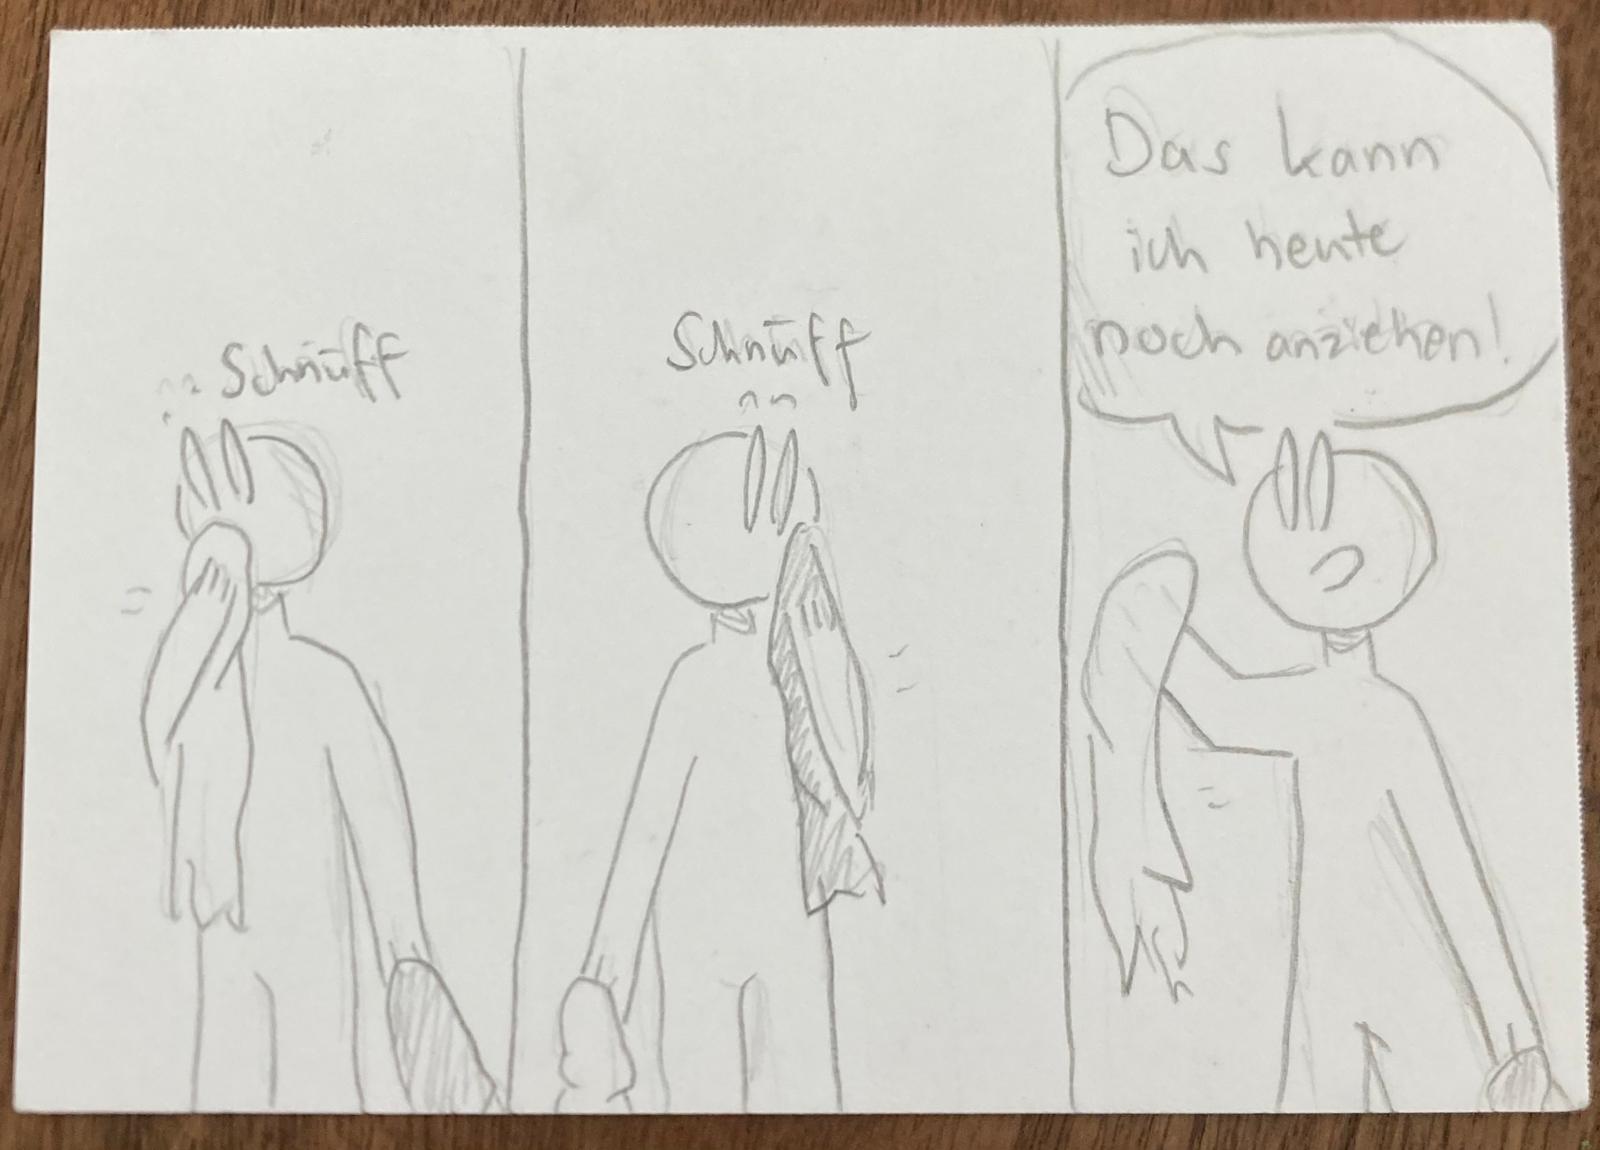 Schnüff
Schnüff
Das kann
ich heute
noch anziehen!